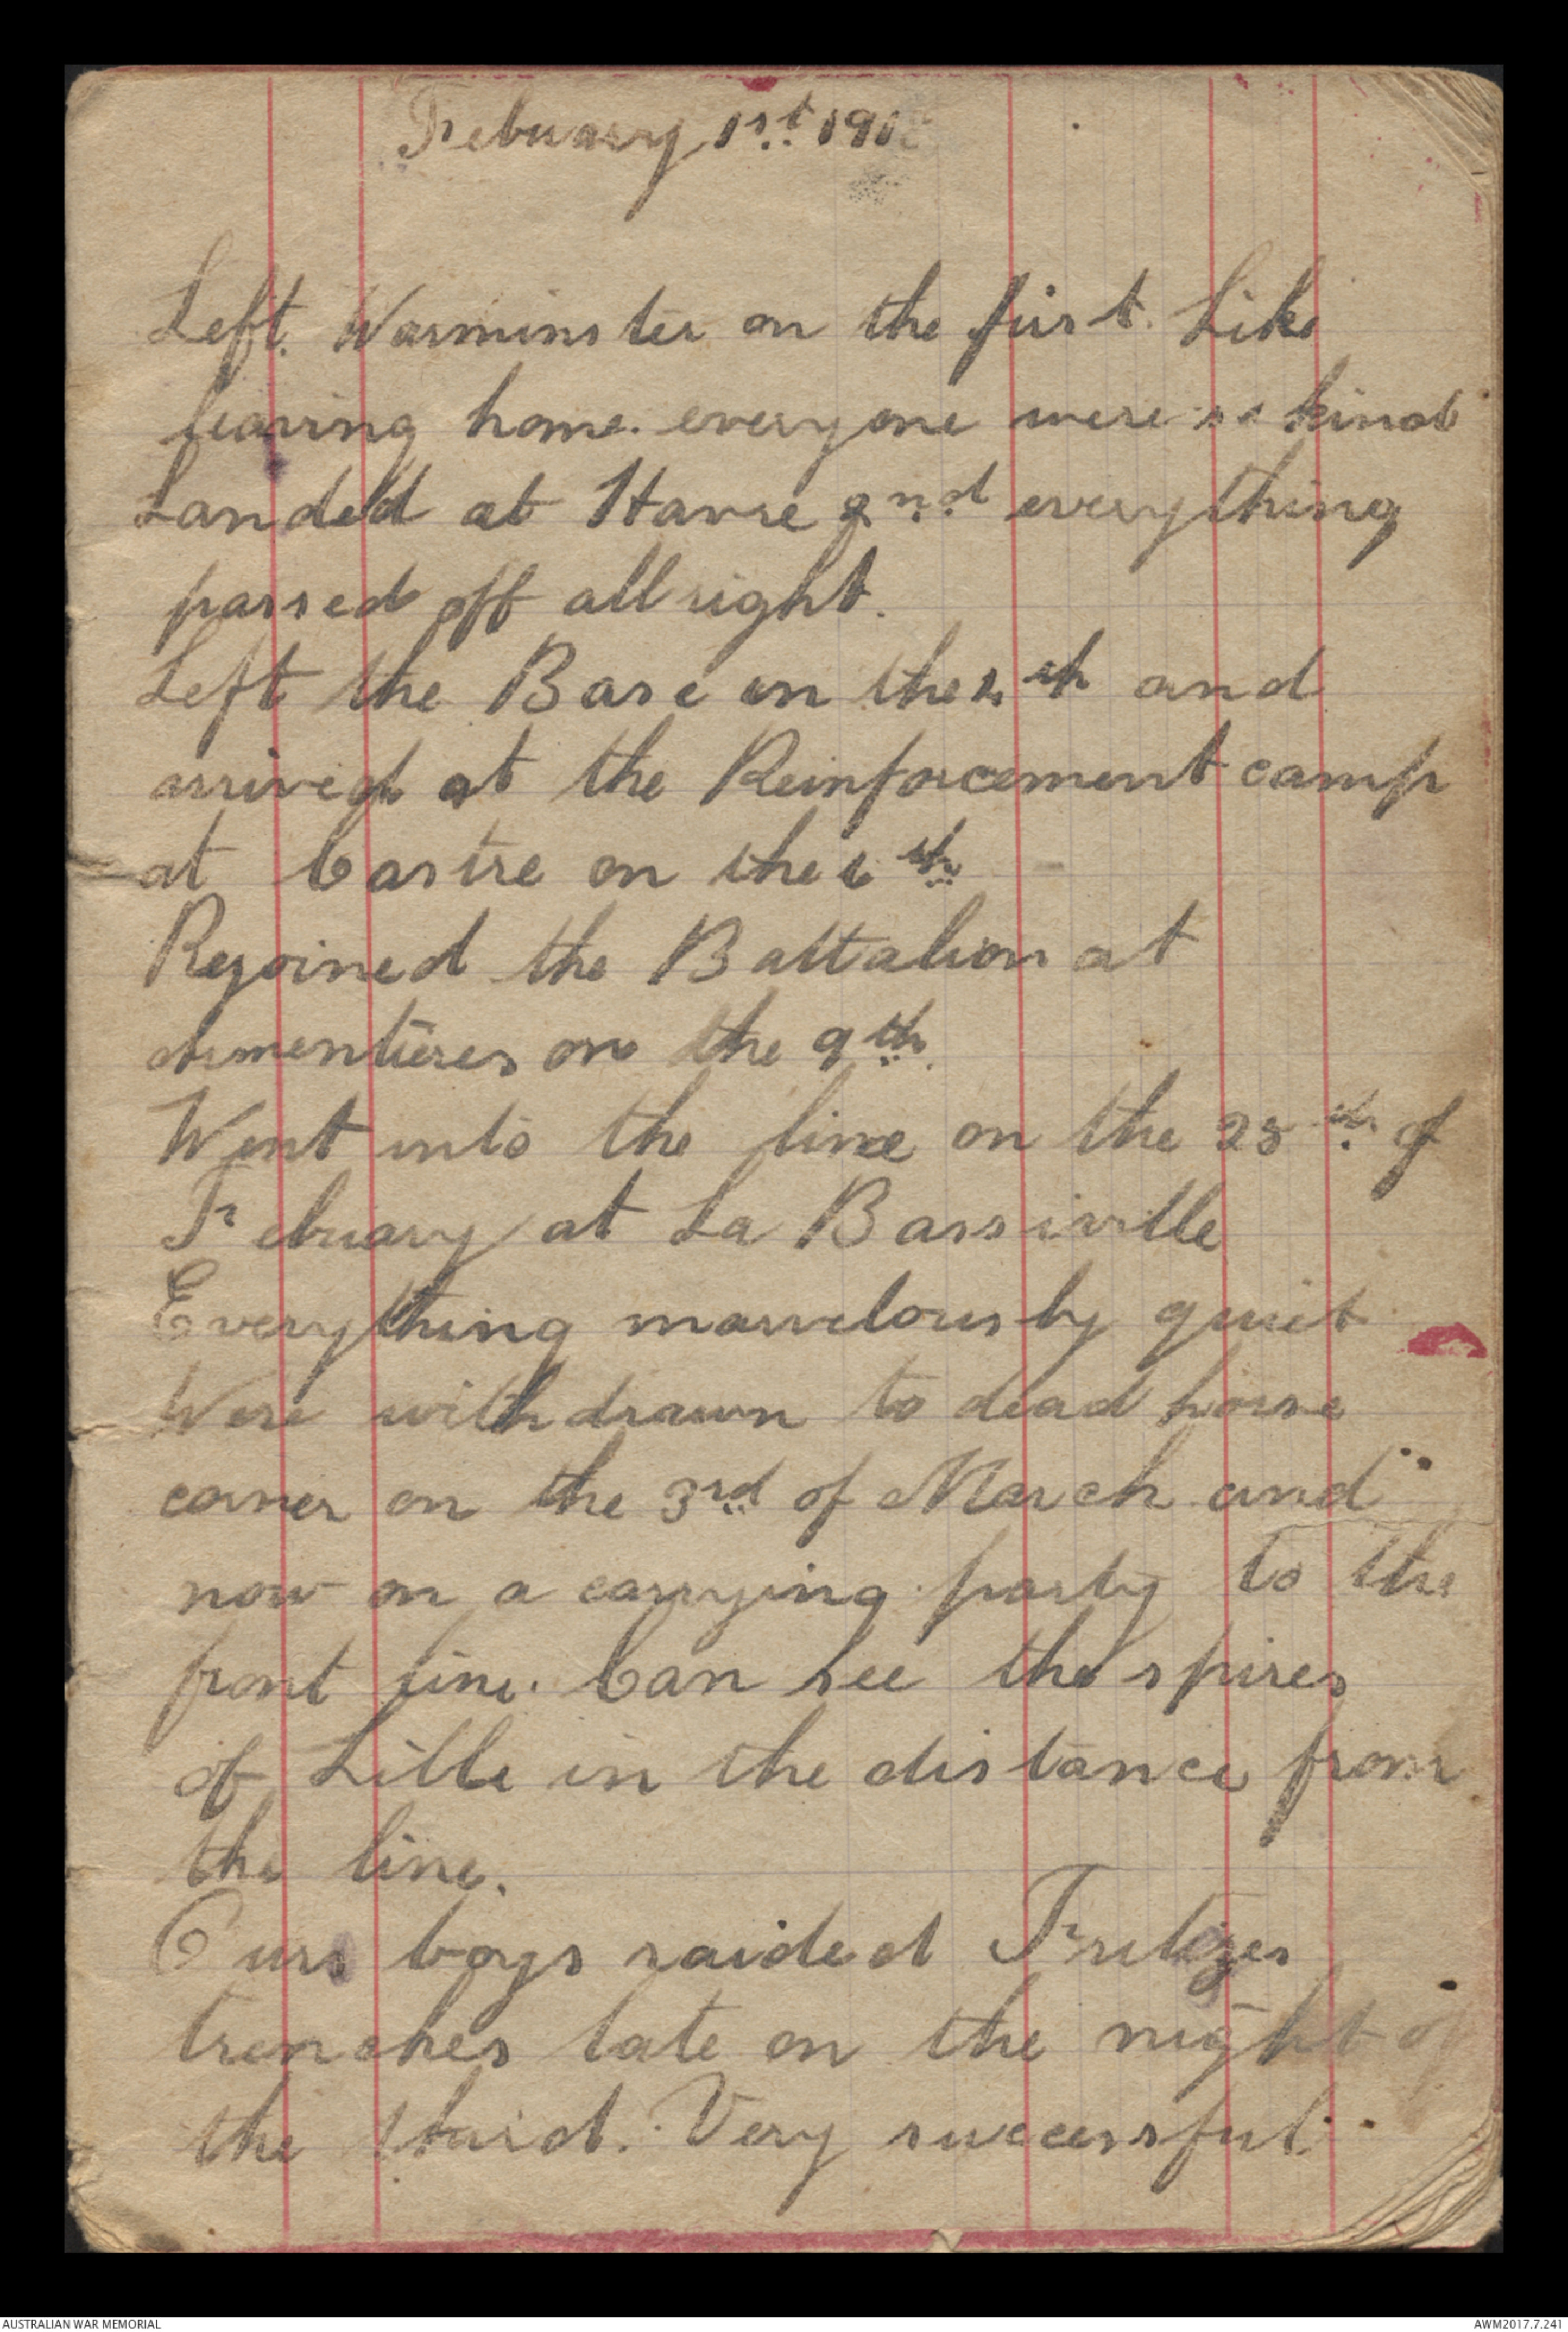 Febuary 1st 1918
Left Warminster on the first. Like
leaving home. everyone were so kind
Landed at Havre 2nd everything
passed off allright.
Left the Base on the 4th and
arrived at the Reinforcement camp
at Castre on the 6th
Rejoined the Battalion at
Armentieres on the 9th.
Went into the line on the 28th of
Febuary at La Bassiville
Everything marvelously quiet
Were withdrawn to dead horse
corner on the 3rd of March and
now on a carrying party to the
front line. Can see the spires
of Lille in the distance from
the line.
Ours boys raided Fritzes
trenches late on the night of
the third. Very successful.
AUSTRALIAN WAR MEMORIAL
AWM2017.7.241